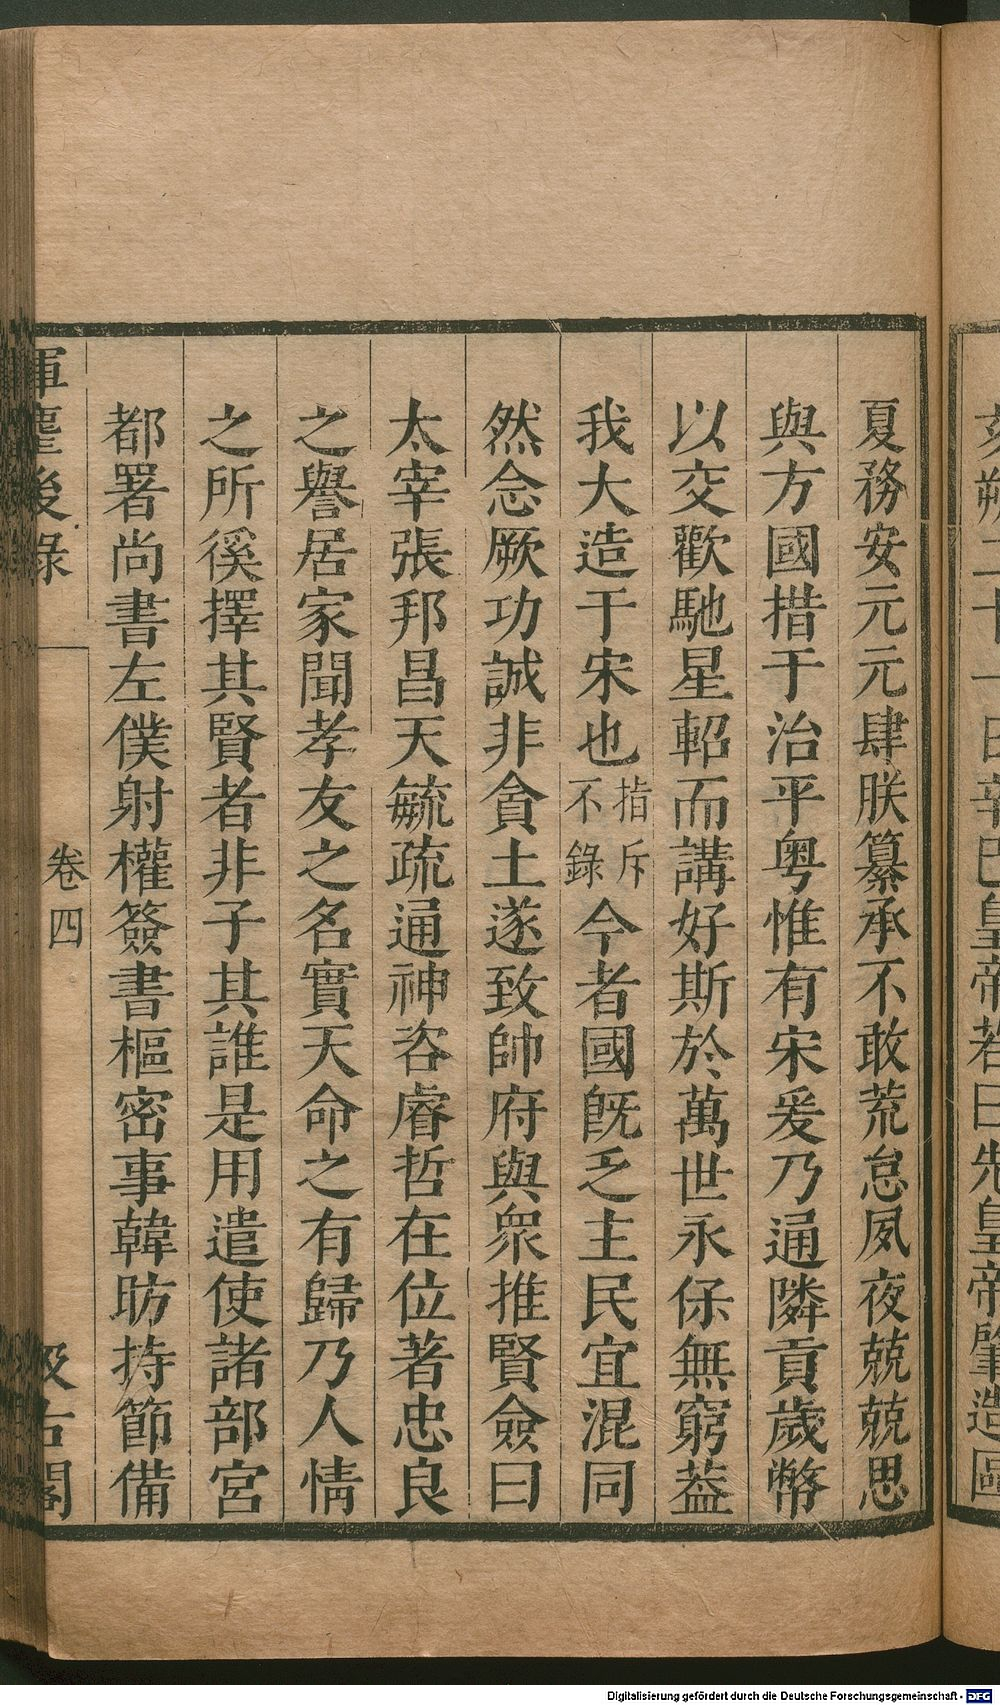 夏務安元元肆朕纂承不敢荒怠夙夜兢兢思
與方國措于治平粤惟有宋爰乃通隣貢歲幣
以交歡馳星軺而講好斯於萬世永保無窮葢
我大造于宋也指斥不錄今者國既乏主民宜混同
然念厥功誠非貪土遂致帥府與衆推賢僉曰
太宰張邦昌天毓疏通神咨睿哲在位著忠良
之譽居家聞孝友之名實天命之有歸乃人情
之所徯擇其賢者非子其誰是用遣使諸部宮
都署尚書左僕射權簽書樞密事韓昉持節備
後錄
卷四
古閣
二十一日辛巳皇帝若曰先皇帝肇造區
Digitalisierung gefördert durch die Deutsche Forschungsgemeinschaft - DFG